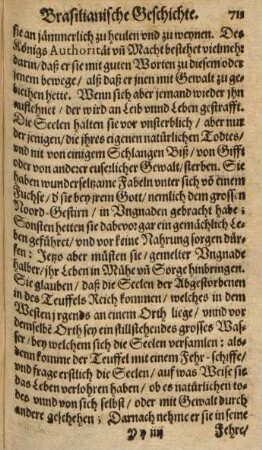 Brasilianische Geschichte. 711
sie an jämmerlich zu heulen und zu weynen. Des
Königs Authorität vñ Macht bestehet vielmehr
darin/ daß er sie mit guten Worten zu diesem oder
jenem bewege/ alß daß er jnen mit Gewalt zu ge-
biethen hette. Wenn sich aber jemand wieder jhn
aufflehnet/ der wird an Leib vnnd Leben gestrafft.
Die Seelen halten sie vor vnsterblich/ aber nur
der jenigen/ die jhres eigenen natürlichen Todtes/
vnd nit von einigem Schlangen Biß/ von Gifft
oder von anderer euserlicher Gewalt/ sterben. Sie
haben wunderseltzame Fabeln unter sich võ einem
Fuchse/ ď sie bey jrem Gott/ nemlich dem grossen
Noord-Gestirn/ in Vngnaden gebracht habe;
Sonsten hetten sie dabevor gar ein gemächlich Le-
ben geführet/ vnd vor keine Nahrung sorgen dür-
ken: Jetzo aber müsten sie/ gemelter Vngnade
halber/ jhr Leben in Mühe vñ Sorge hinbringen.
Sie glauben/ daß die Seelen der Abgestorbenen
in des Teuffels Reich kommen/ welches in dem
Westen jrgends an einem Orth liege/ vnnd vor
demselbē Orth sey ein stillstehendes grosses Was-
ser/ bey welchem sich die Seelen versamlen: als-
denn komme der Teuffel mit einem Fehr-schiffe/
und frage erstlich die Seelen/ auf was Weise sie
das Leben verlohren haben/ ob es natürlichen to-
des vnnd von sich selbst/ oder mit Gewalt durch
andere geschehen; Darnach nehme er sie in seine
Yy iiij Jehre/